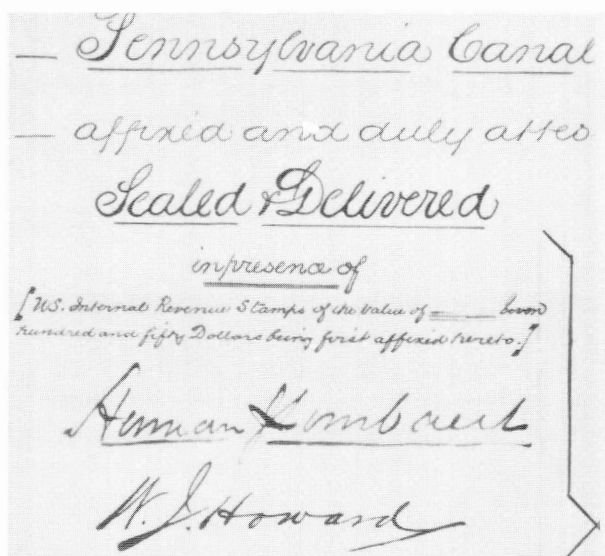 — Pennsylvania Canal
— affixed and duly attes
Sealed & Delivered
in presence of
[U.S. Internal Revenue Stamps of the value of ____ seven
hundred and fifty Dollars being first affixed hereto.]
Herman J Lombaert
W. J. Howard